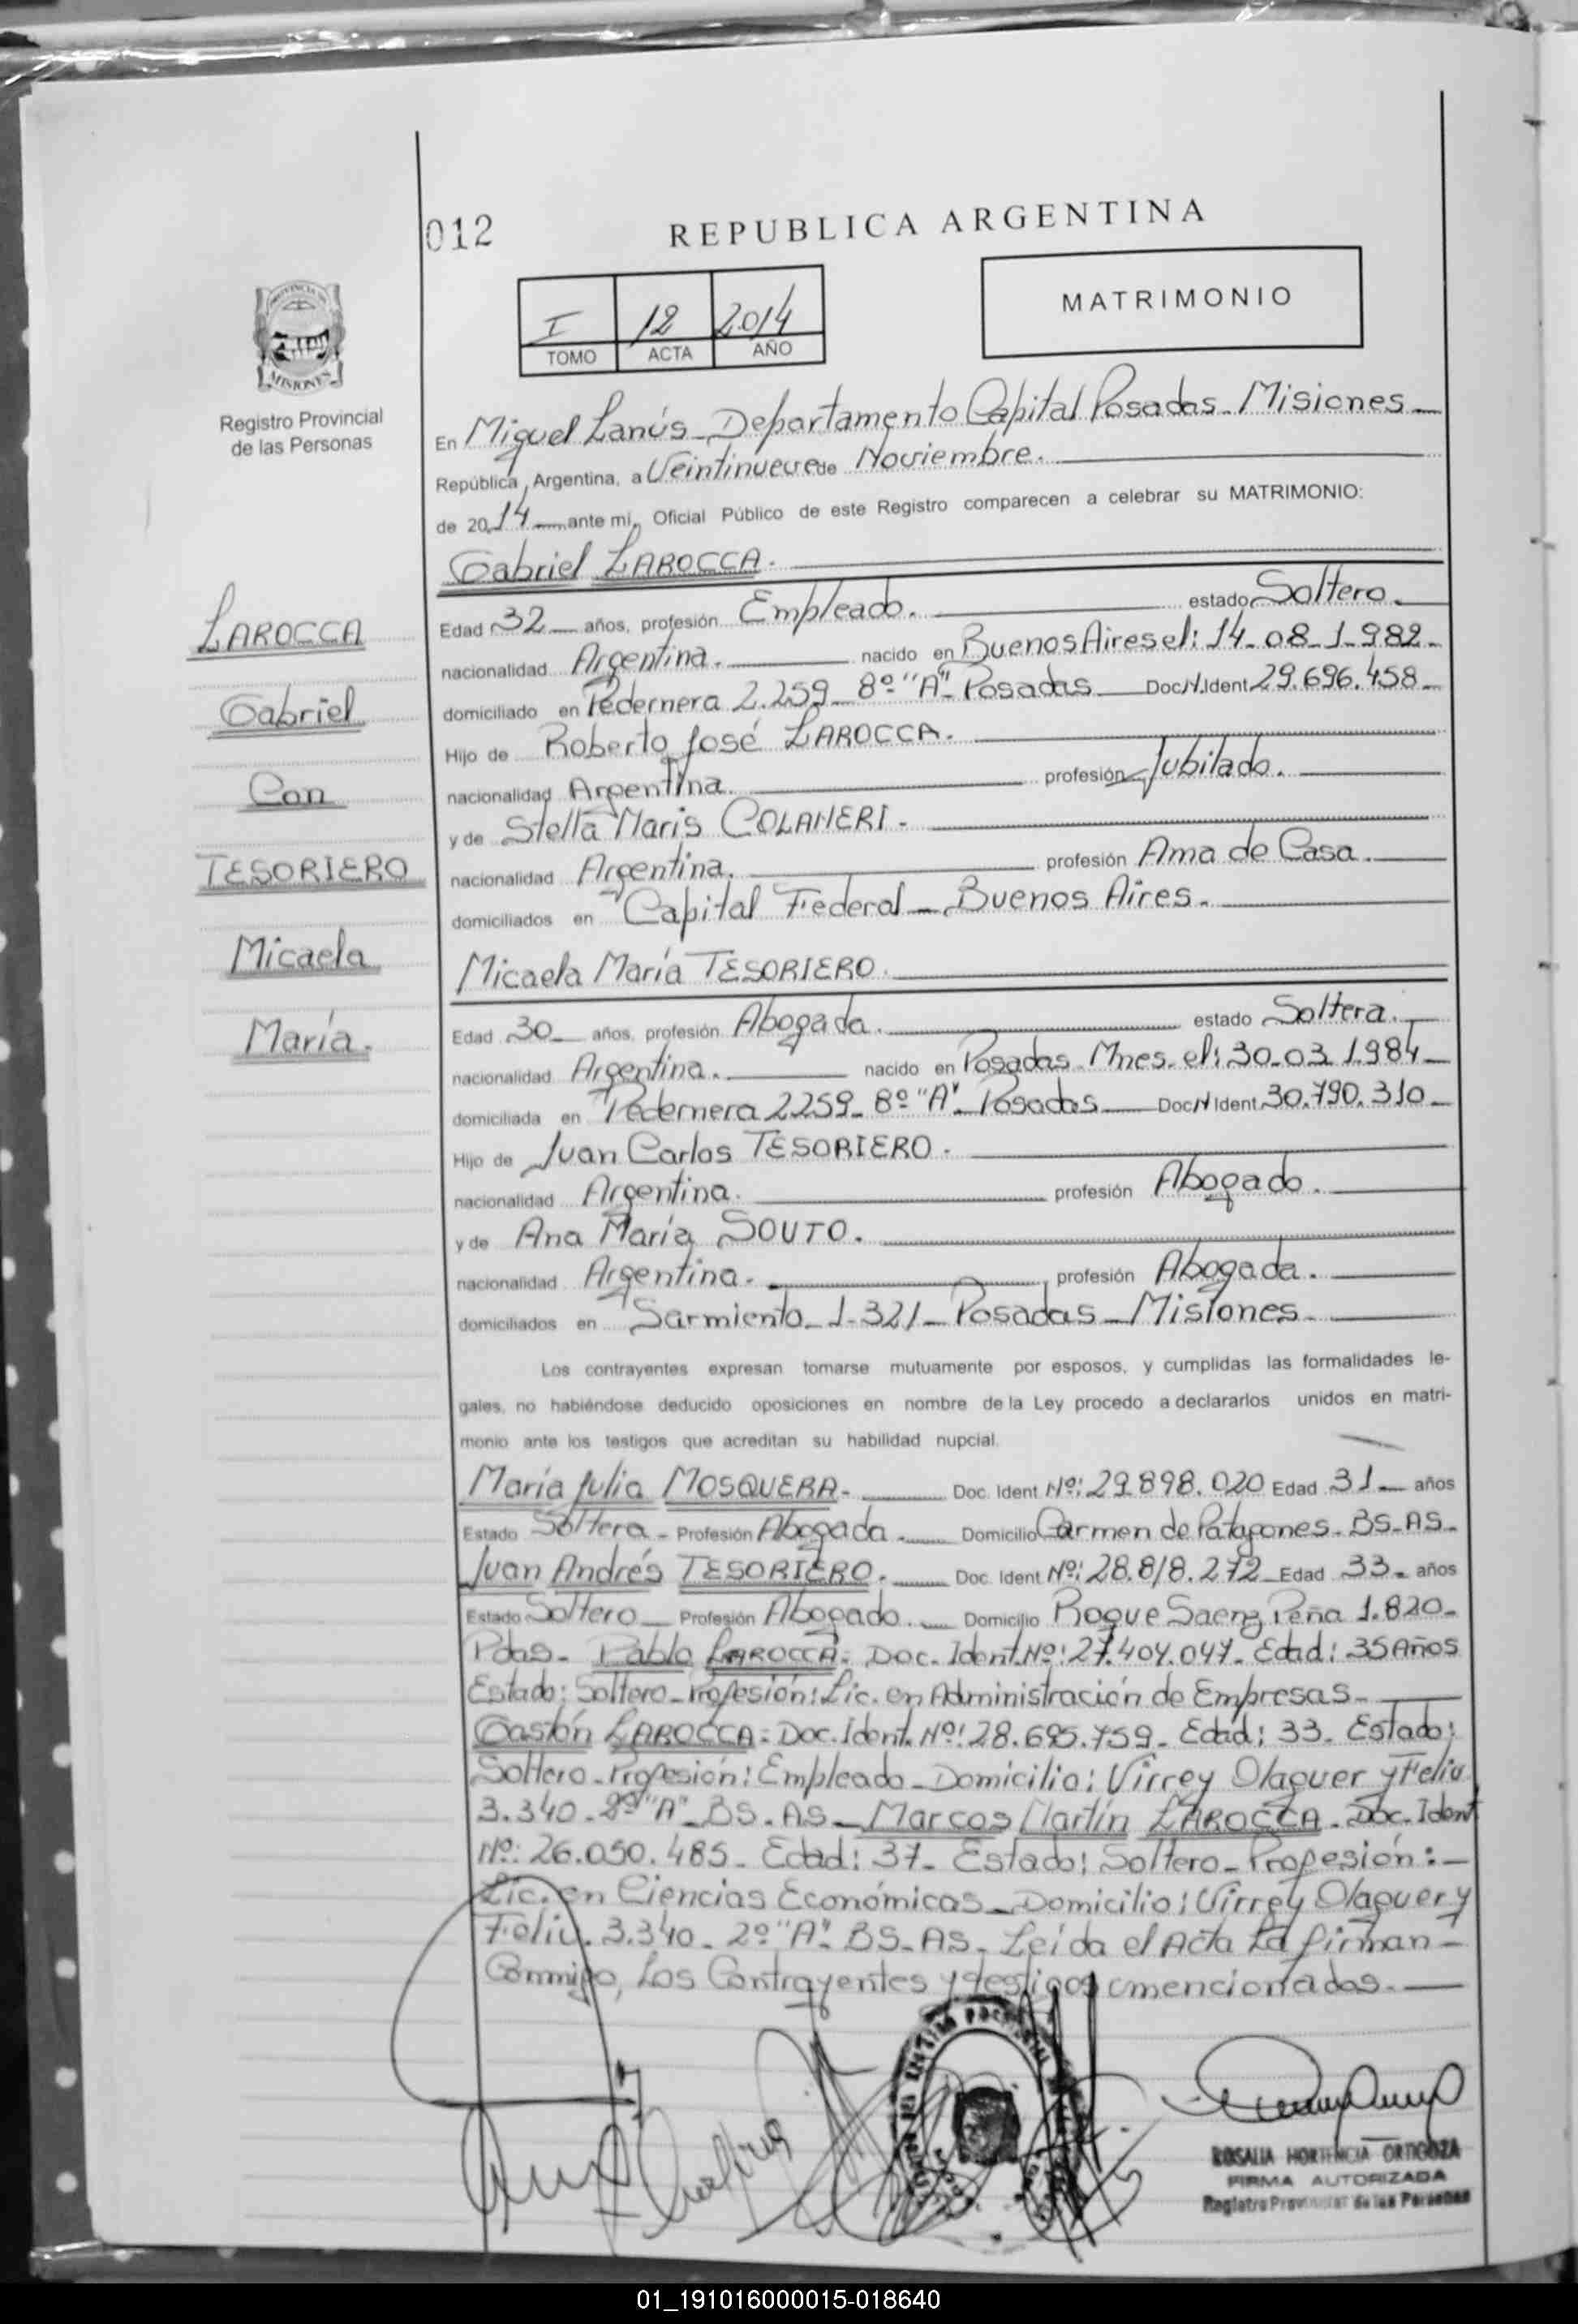 012
REPUBLICA ARGENTINA
I 12 2014
TOMO ACTA AÑO
MATRIMONIO
PROVINCIA DE
MISIONES
Registro Provincial
de las Personas
LAROCCA
Gabriel
Con
TESORIERO
Micaela
María.
En Miguel Lanús - Departamento Capital Posadas - Misiones
República Argentina, a Veintinueve de Noviembre.
de 2014 ante mi, Oficial Público de este Registro comparecen a celebrar su MATRIMONIO:
Gabriel LAROCCA.
Edad 32 años, profesión Empleado. estado Soltero.
nacionalidad Argentina. nacido en Buenos Aires el: 14-08-1.982-
domiciliado en Pedernera 2.259 - 8º "A" - Posadas Doc.N.Ident 29.696.458-
Hijo de Roberto José LAROCCA.
nacionalidad Argentina. profesión Jubilado.
y de Stella Maris COLANERI.
nacionalidad Argentina. profesión Ama de Casa.
domiciliados en Capital Federal - Buenos Aires.
Micaela María TESORIERO.
Edad 30 años, profesión Abogada. estado Soltera.
nacionalidad Argentina. nacido en Posadas - Mnes. el: 30-03-1.984-
domiciliada en Pedernera 2259 - 8º "A" - Posadas Doc N Ident 30.790.310-
Hijo de Juan Carlos TESORIERO.
nacionalidad Argentina. profesión Abogado.
y de Ana María SOUTO.
nacionalidad Argentina. profesión Abogada.
domiciliados en Sarmiento - 1.321 - Posadas - Misiones
Los contrayentes expresan tomarse mutuamente por esposos, y cumplidas las formalidades le-
gales, no habiéndose deducido oposiciones en nombre de la Ley procedo a declararlos unidos en matri-
monio ante los testigos que acreditan su habilidad nupcial.
María Julia MOSQUERA. Doc. Ident Nº: 29.898.020 Edad 31 años
Estado Soltera - Profesión Abogada. Domicilio Carmen de Patagones - BS-AS-
Juan Andrés TESORIERO. Doc. Ident Nº: 28.818.272 Edad 33 años
Estado Soltero Profesión Abogado. Domicilio Roque Saenz Peña 1.820-
Pdas - Pablo LAROCCA - Doc. Ident. Nº: 27.404.047 - Edad: 35 Años
Estado: Soltero - Profesión: Lic. en Administración de Empresas -
Gastón LAROCCA - Doc. Ident. Nº: 28.695.759 - Edad: 33 - Estado:
Soltero - Profesión: Empleado - Domicilio: Virrey Olaguer y Feliu
3.340 - 2º "A" - BS.AS - Marcos Martín LAROCCA - Doc. Ident
Nº: 26.050.485 - Edad: 37 - Estado: Soltero - Profesión: -
Lic. en Ciencias Económicas - Domicilio: Virrey Olaguer y
Feliu. 3.340 - 2º "A" - BS-AS - Leída el Acta La firman -
Conmigo, Los Contrayentes y testigos mencionados.
ROSALIA HORTENCIA ORTIGOZA
FIRMA AUTORIZADA
Registro Provincial de las Personas
01_191016000015-018640